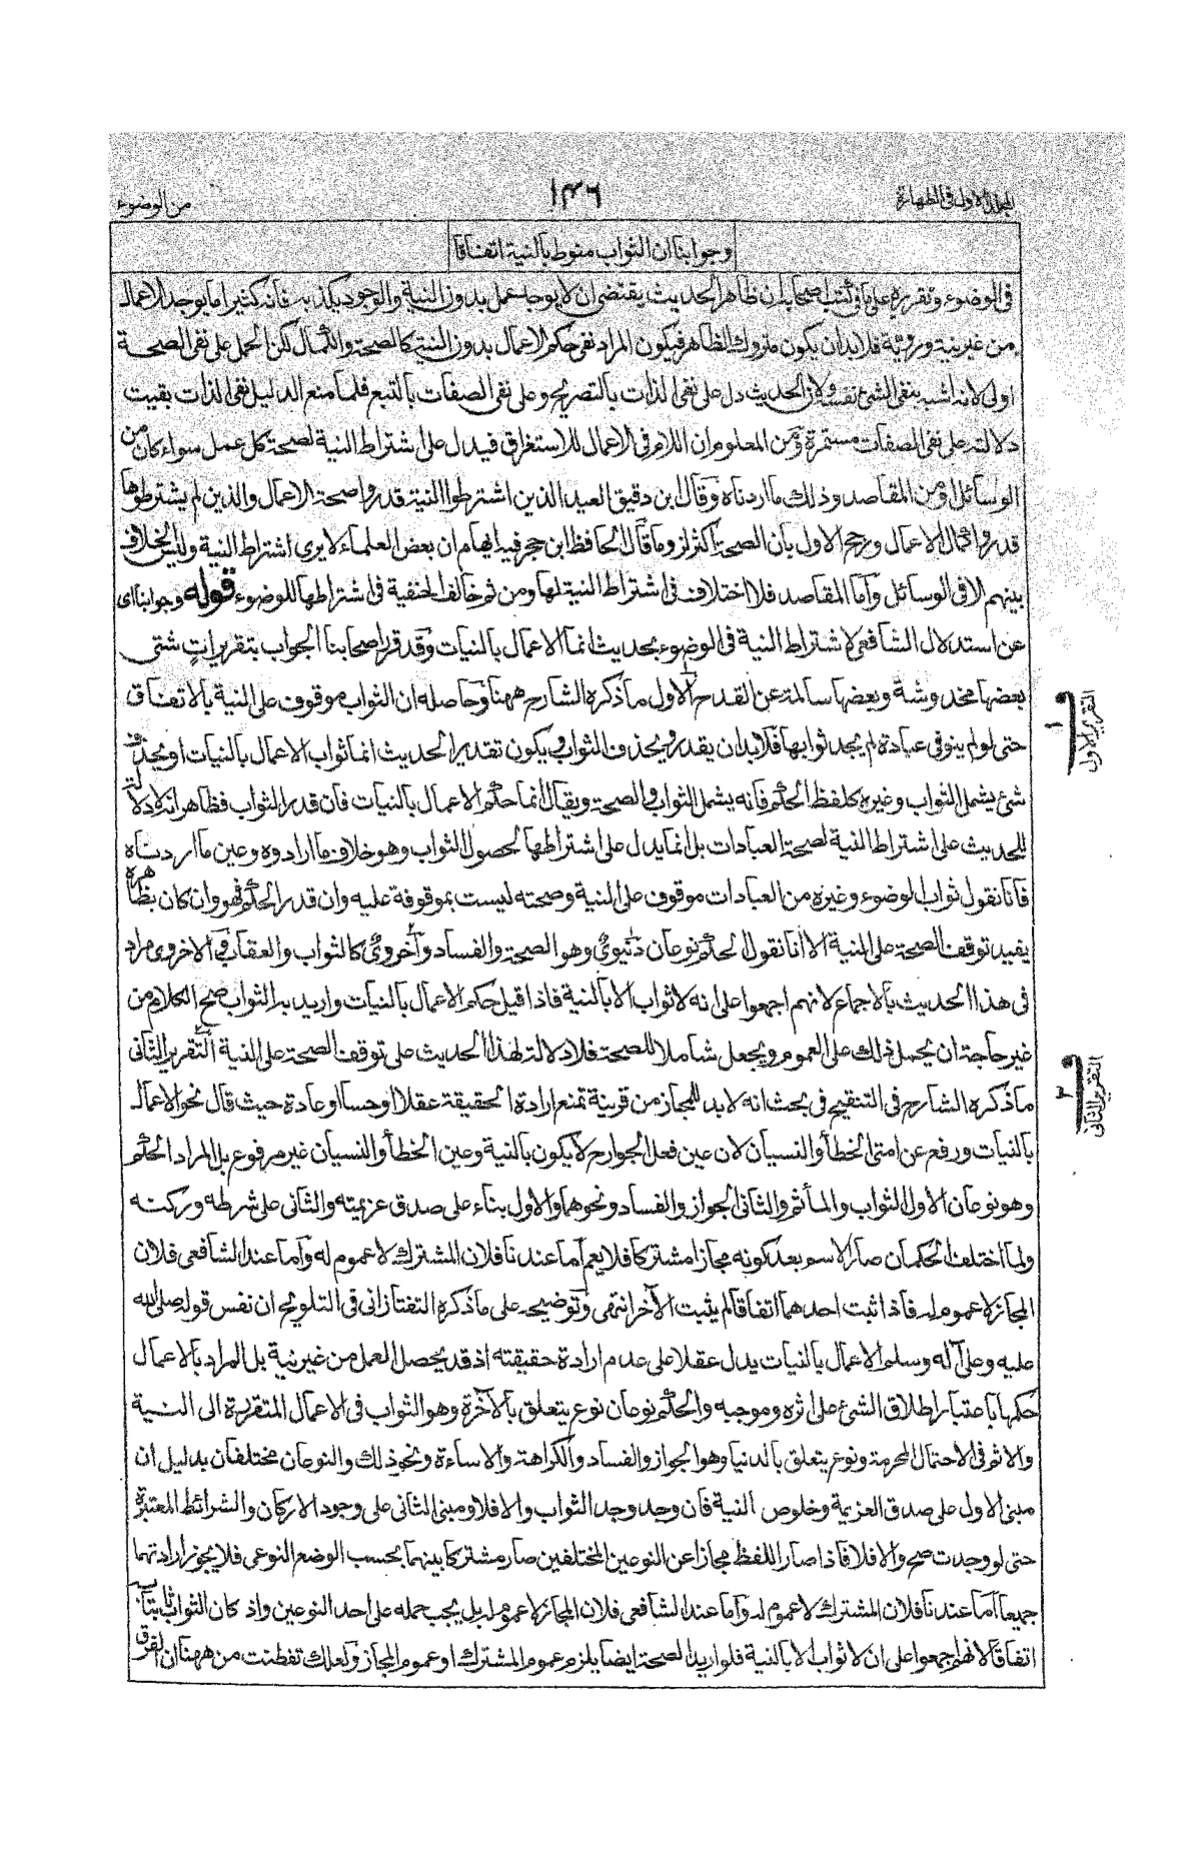 المجلد الاول فى الطهارة
١٤٦
من الوضوء
وجوابنا ان الثواب منوط بالنية اتفاقا
فى الوضوء وتقريره على ما فى كتب اصحابه ان ظاهر الحديث يقتضى ان لا يوجد عمل بدون النية والوجود يكذبه فانه كثيرا ما يوجد الاعمال
من غير نية وروية فلا بد ان يكون متروك الظاهر فيكون المراد نفى حكم الاعمال بدون النية كالصحة والكمال لكن الحمل على نفى الصحة
اولى لانه اشبه بنفى الشئ نفسه ولان الحديث دل على نفى الذات بالتصريح وعلى نفى الصفات بالتبع فلما منع الدليل نفى الذات بقيت
دلالته على نفى الصفات مستمرة ومن المعلوم ان اللام فى الاعمال للاستغراق فيدل على اشتراط النية لصحة كل عمل سواء كان من
الوسائل او من المقاصد وذلك ما اردناه وقال ابن دقيق العيد الذين اشترطوا النية قدروا صحة الاعمال والذين لم يشترطوها
قدروا كمال الاعمال ورجح الاول بان الصحة اكثر لزوما قال الحافظ ابن حجر فيه ايهام ان بعض العلماء لا يرى اشتراط النية وليس الخلاف
بينهم الا فى الوسائل واما المقاصد فلا اختلاف فى اشتراط النية لها ومن ثم خالف الحنفية فى اشتراطها للوضوء قوله وجوابنا اى
عن استدلال الشافعى لاشتراط النية فى الوضوء بحديث انما الاعمال بالنيات وقد قرر اصحابنا الجواب بتقريرات شتى
بعضها مخدوشة وبعضها سالمة عن القدح الاول ما ذكره الشارح ههنا وحاصله ان الثواب موقوف على النية بالاتفاق
حتى لو لم ينو فى عبادة لم يجد ثوابها فلا بد ان يقدر ويحذف الثواب ويكون تقدير الحديث انما ثواب الاعمال بالنيات او يحذف
شئ يشمل الثواب وغيره كلفظ الحكم فانه يشمل الثواب والصحة ويقال انما حكم الاعمال بالنيات فان قدر الثواب فظاهر انه لا دلالة
للحديث على اشتراط النية لصحة العبادات بل انما يدل على اشتراطها لحصول الثواب وهو خلاف ما ارادوه وعين ما اردناه
فانا نقول ثواب الوضوء وغيره من العبادات موقوف على النية وصحته ليست بموقوفة عليه وان قدر الحكم فهو وان كان بظاهره
يفيد توقف الصحة على النية الا انا نقول الحكم نوعان دنيوى وهو الصحة والفساد وأخروى كالثواب والعقاب والاخروى مراد
فى هذا الحديث بالاجماع لانهم اجمعوا على انه لا ثواب الا بالنية فاذا قيل حكم الاعمال بالنيات واريد به الثواب صح الكلام من
غير حاجة ان يحمل ذلك على العموم ويجعل شاملا للصحة فلا دلالة لهذا الحديث على توقف الصحة على النية التقرير الثانى
ما ذكره الشارح فى التنقيح فى بحث انه لا بد للمجاز من قرينة تمنع ارادة الحقيقة عقلا او حسا او عادة حيث قال نحو الاعمال
بالنيات ورفع عن امتى الخطأ والنسيان لان عين فعل الجوارح لا يكون بالنية وعين الخطأ والنسيان غير مرفوع بل المراد الحكم
وهو نوعان الاول الثواب والمأثم والثانى الجواز والفساد ونحوهما والاول بناء على صدق عزيمته والثانى على شرطه وركنه
ولما اختلف الحكمان صار الاسم بعد كونه مجازا مشتركا فلا يعم اما عندنا فلان المشترك لا عموم له واما عند الشافعى فلان
المجاز لا عموم له فاذا ثبت احدهما اتفاقا لم يثبت الآخر انتهى وتوضيحه على ما ذكره التفتازانى فى التلويح ان نفس قوله صلى الله
عليه وعلى آله وسلم الاعمال بالنيات يدل عقلا على عدم ارادة حقيقته اذ قد يحصل العمل من غير نية بل المراد بالاعمال
حكمها باعتبار اطلاق الشئ على اثره وموجبه والحكم نوعان نوع يتعلق بالآخرة وهو الثواب فى الاعمال المتقررة الى النية
والاثم فى الاحتمال المحرمة ونوع يتعلق بالدنيا وهو الجواز والفساد والكراهة والاساءة ونحو ذلك والنوعان مختلفان بدليل ان
مبنى الاول على صدق العزيمة وخلوص النية فان وجد وجد الثواب والا فلا ومبنى الثانى على وجود الاركان والشرائط المعتبرة
حتى لو وجدت صح والا فلا فاذا صار اللفظ مجازا عن النوعين المختلفين صار مشتركا بينهما بحسب الوضع النوعى فلا يجوز ارادتهما
جميعا اما عندنا فلان المشترك لا عموم له واما عند الشافعى فلان المجاز لا عموم له بل يجب حمله على احد النوعين واذ كان الثواب ثابتا به
اتفاقا لانهم اجمعوا على ان لا ثواب الا بالنية فلو اريد الصحة ايضا يلزم عموم المشترك او عموم المجاز ولعلك تفطنت من ههنا ان الفرق
التقرير الاول
١
التقرير الثانى
٢